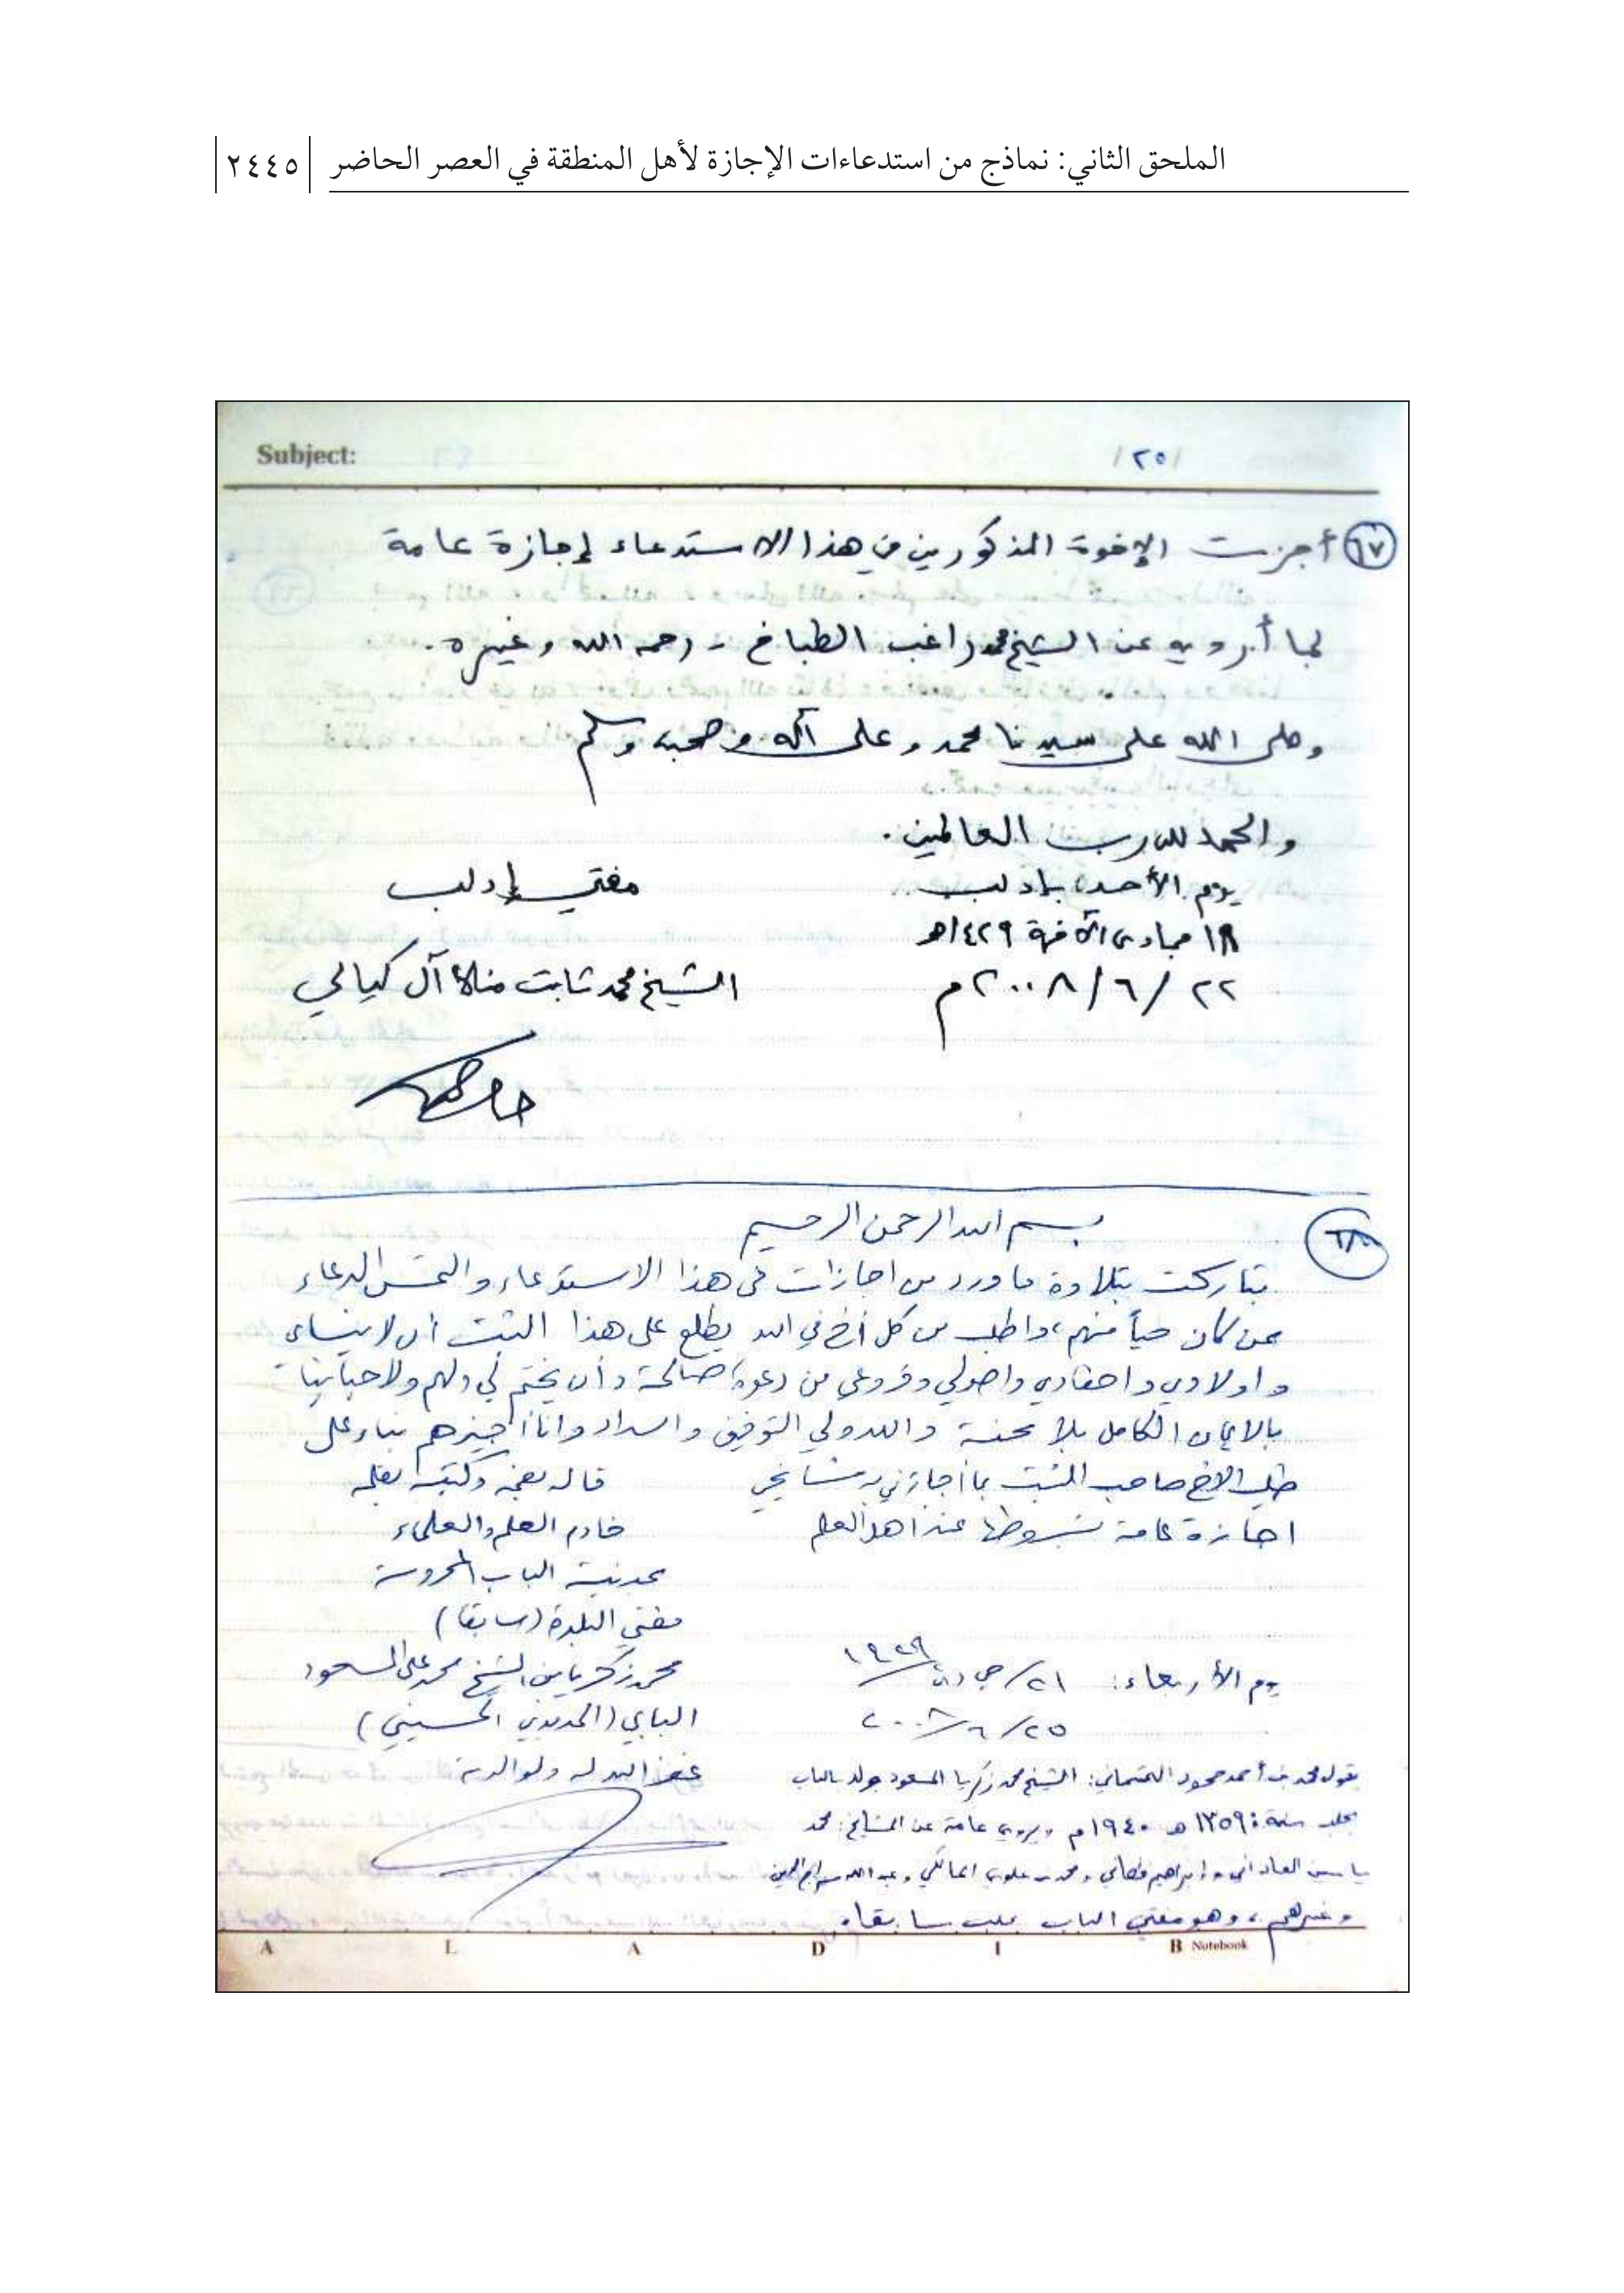 الملحق الثاني: نماذج من استدعاءات الإجازة لأهل المنطقة في العصر الحاضر ٢٤٤٥
Subject: /٢٥/
٦٧ أجزت الإخوة المذكورين في هذا الاستدعاء إجازة عامة
لما أرويه عن الشيخ محمد راغب الطباخ - رحمه الله وغيره.
وصلى الله على سيدنا محمد وعلى آله وصحبه وسلم
والحمد لله رب العالمين.
يوم الأحد بإدلب مفتي إدلب
١٨ جمادى الآخرة ١٤٢٩هـ
٢٢/٦/٢٠٠٨م الشيخ محمد ثابت آل كيالي
بسم الله الرحمن الرحيم
٦٨
تباركت بتلاوة ما ورد من اجازات في هذا الاستدعاء والتمس الدعاء
ممن كان حياً منهم، واطلب من كل أخ في الله يطلع على هذا الثبت أن لا ينساني
واولادي واحفادي واصولي وفروعي من دعوة صالحة وأن يختم لي ولهم ولاحبابنا
بالايمان الكامل بلا محنة والله ولي التوفيق والسداد وانا أجيزهم بناء على
طلب الاخ صاحب الثبت بما أجازني به مشايخي قاله بفمه وكتبه بقلمه
اجازة عامة بشروطها عند اهل العلم خادم العلم والعلماء
بمدينة الباب المحروسة
مفتي البلدة (سابقا)
يوم الأربعاء: ٢١/ ١٤٢٩ محمد زكريا بن الشيخ محمد علي المسعود
٢٥/٦/٢٠٠٨ البابي (الحديدي الحسيني)
غفر الله له ولوالديه
يقول محمد بن أحمد محمود : الشيخ محمد زكريا المسعود مولده بالباب
بحلب سنة: ١٣٥٩هـ ١٩٤٠م ويروي عامة عن المشايخ: محمد
ياسين الفاداني وإبراهيم ومحمد بن علوي المالكي وعبد الله سراج الدين
وغيرهم، وهو مفتي الباب بحلب سابقا.
A L A D I B Notebook